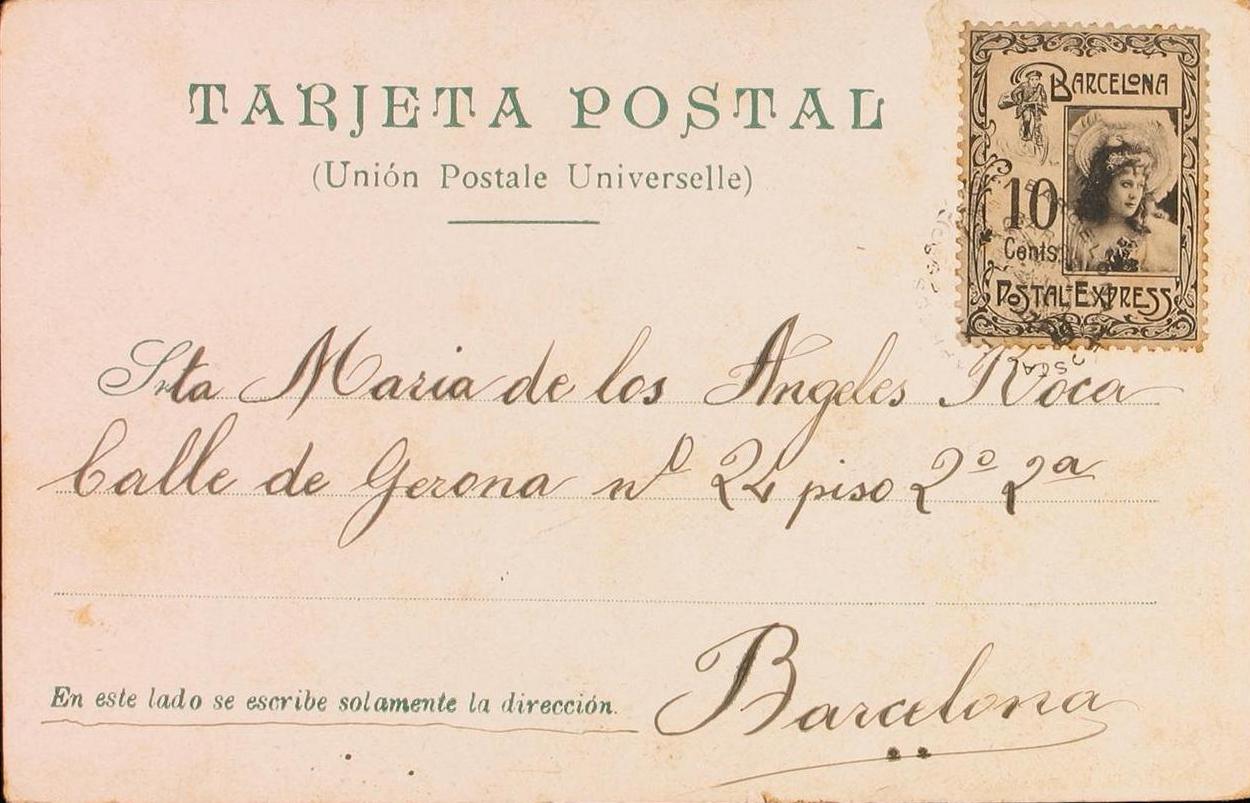 TARJETA POSTAL
(Unión Postale Universelle)
BARCELONA
10
Cents.
POSTAL-EXPRESS
Srta Maria de los Angeles Roca
Calle de Gerona nº 24 piso 2º 2ª
Barcelona
En este lado se escribe solamente la dirección.